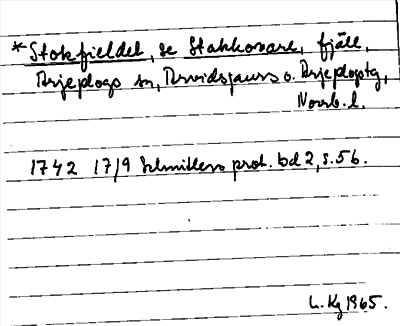 *Stokfieldet, se Stakkovare, fjäll,
Arjeplogs sn, Arvidsjaurs o. Arjeplogs tg,
Norrb. l.
1742 17/9 Schnitlers prot. bd 2, s. 56.
L. Kg 1965.